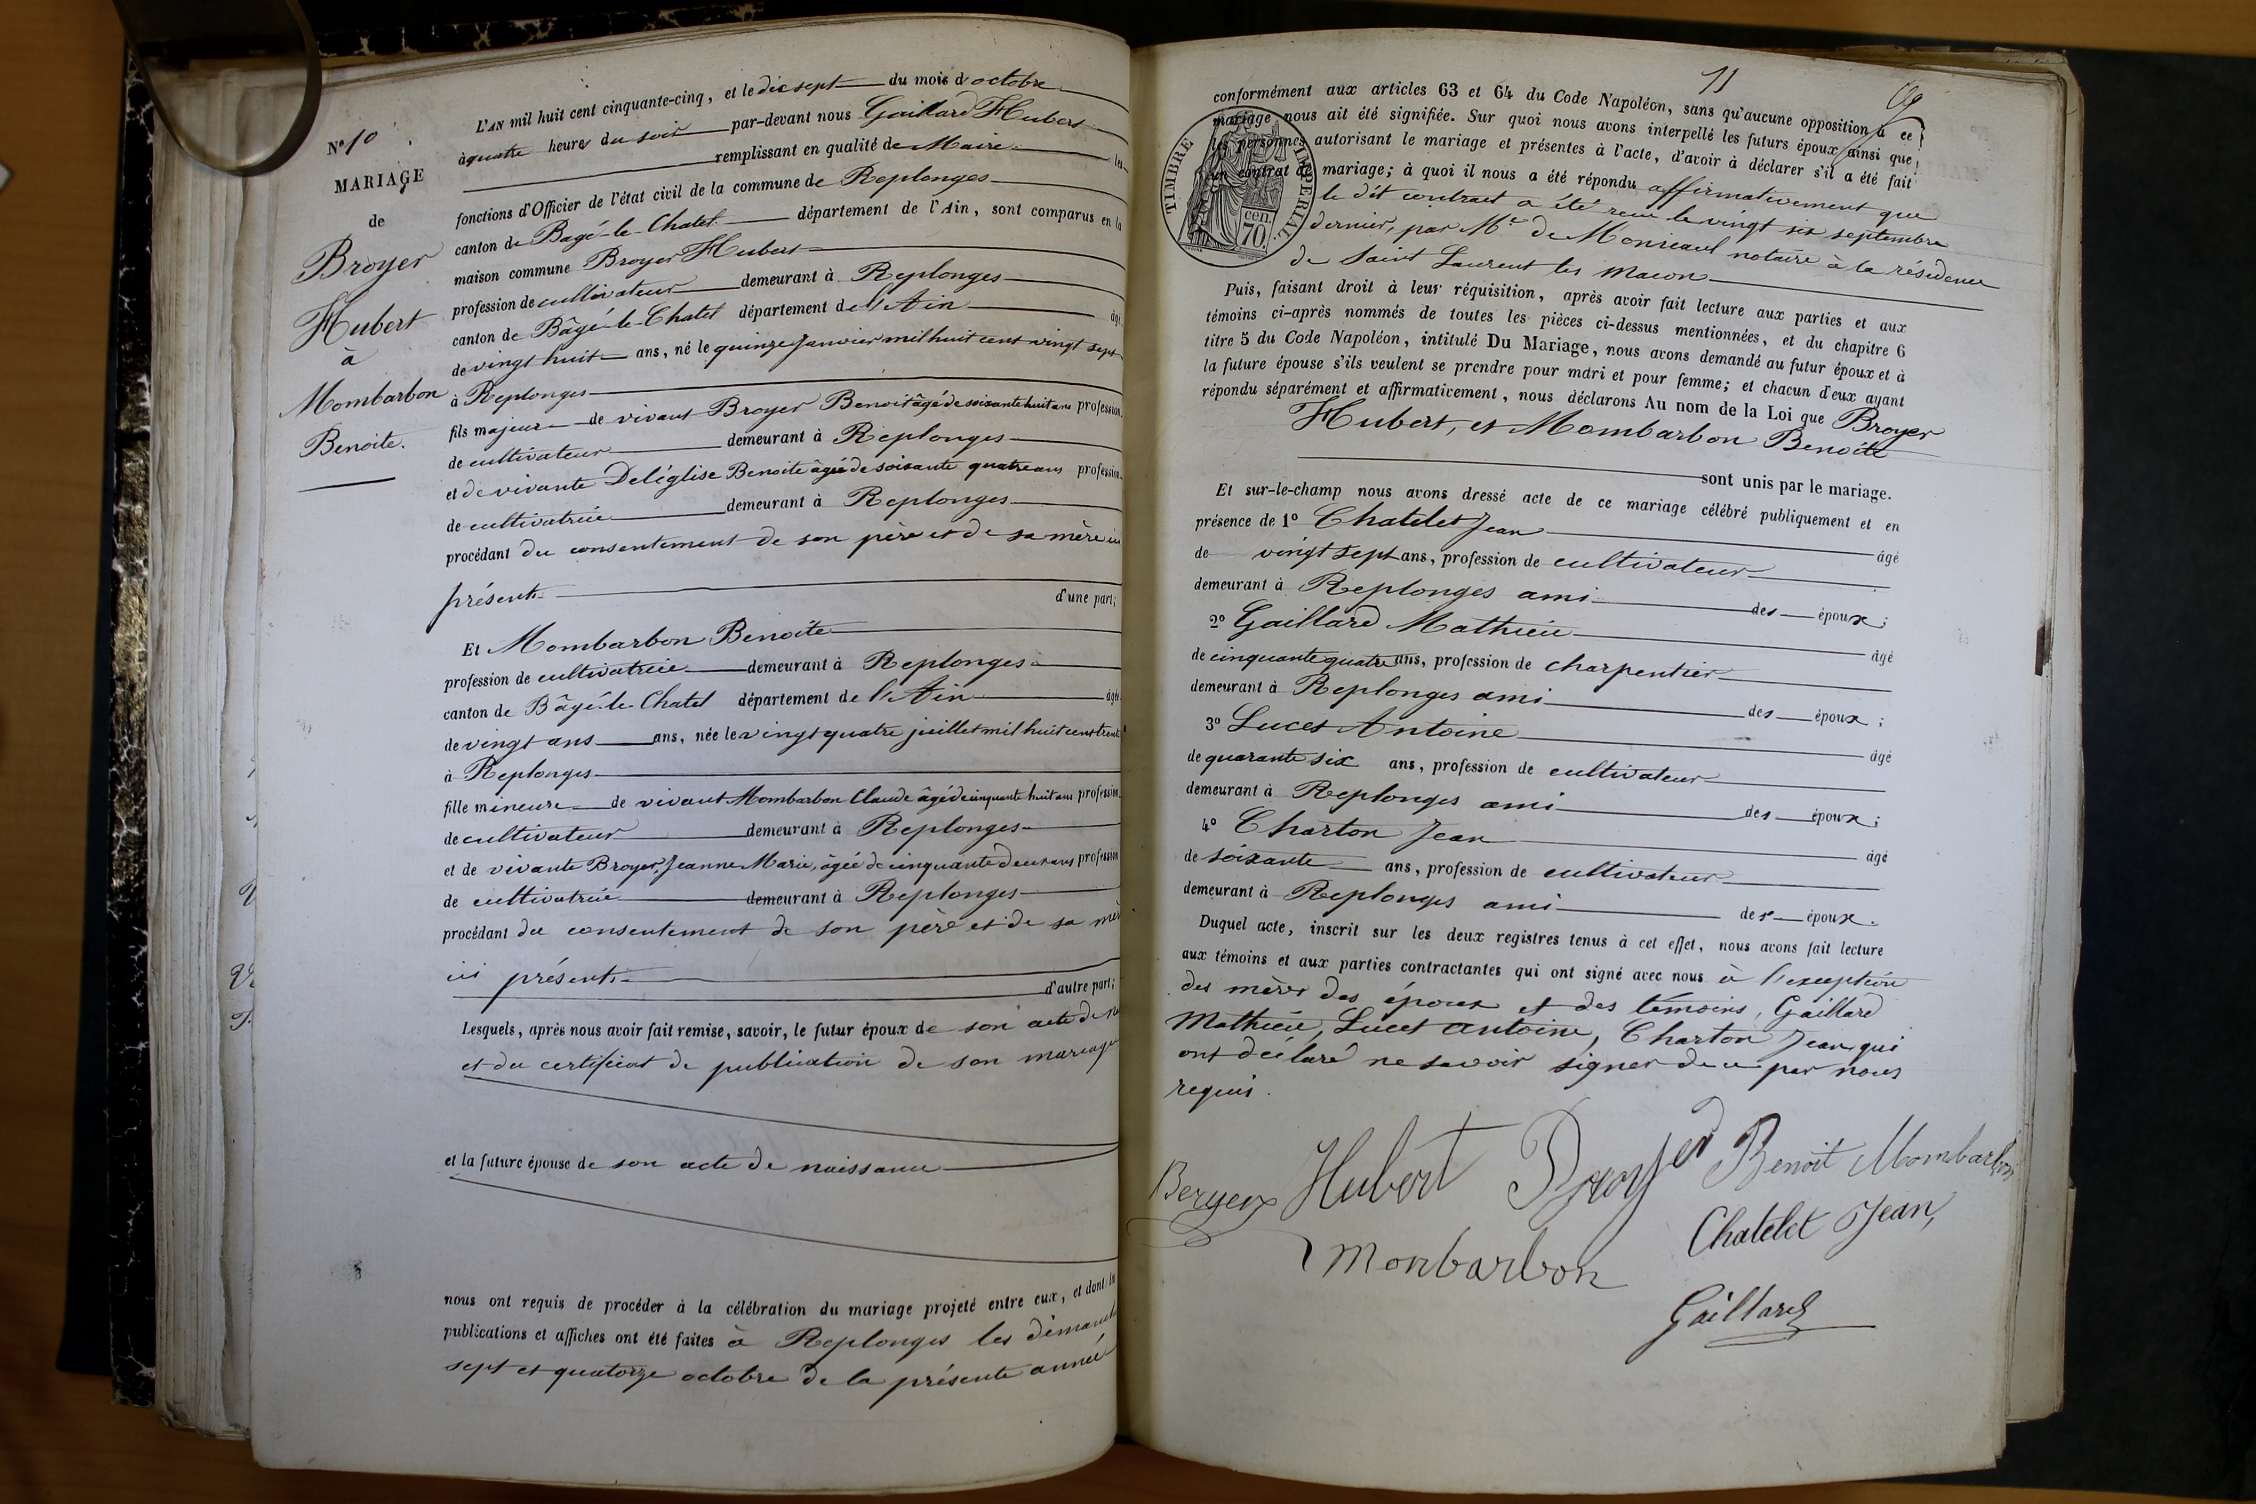 N° 10
MARIAGE
de
Broyer
Hubert
à
Mombarbon
Benoite.
L'AN mil huit cent cinquante-cinq, et le dix sept du mois d'octobre
à quatre heures du soir par-devant nous Gaillard Hubert
remplissant en qualité de Maire les
fonctions d'Officier de l'état civil de la commune de Replonges
canton de Bagé-le-Chatel département de l'Ain, sont comparus en la
maison commune Broyer Hubert
profession de cultivateur demeurant à Replonges
canton de Bâgé-le-Chatel département de l'Ain âgé
de vingt huit ans, né le quinze Janvier mil huit cent vingt sept
à Replonges
fils majeur de vivant Broyer Benoit âgé de soixante huit ans profession
de cultivateur demeurant à Replonges
et de vivante Deléglise Benoite âgée de soixante quatre ans profession
de cultivatrice demeurant à Replonges
procédant du consentement de son père et de sa mère ici
présents d'une part;
Et Mombarbon Benoite
profession de cultivatrice demeurant à Replonges
canton de Bâgé-le-Chatel département de l'Ain âgée
de vingt ans ans, née le vingt quatre juillet mil huit cent trente
à Replonges
fille mineure de vivant Mombarbon Claude âgé de cinquante huit ans profession
de cultivateur demeurant à Replonges
et de vivante Broyer Jeanne Marie, âgée de cinquante deux ans profession
de cultivatrice demeurant à Replonges
procédant du consentement de son père et de sa mère
ici présents
d'autre part;
Lesquels, après nous avoir fait remise, savoir, le futur époux de son acte de
et du certificat de publication de son mariage
et la future épouse de son acte de naissance
nous ont requis de procéder à la célébration du mariage projeté entre eux, et dont les
publications et affiches ont été faites à Replonges les dimanches
sept et quatorze octobre de la présente année
11
conformément aux articles 63 et 64 du Code Napoléon, sans qu'aucune opposition à ce
mariage nous ait été signifiée. Sur quoi nous avons interpellé les futurs époux ainsi que
les personnes autorisant le mariage et présentes à l'acte, d'avoir à déclarer s'il a été fait
un contrat de mariage; à quoi il nous a été répondu affirmativement que
le dit contract a été recu le vingt six septembre
dernier, par Me de Monseaul notaire à la résidence
de Saint Laurent les Macon
TIMBRE IMPÉRIAL
70 cen.
Puis, faisant droit à leur réquisition, après avoir fait lecture aux parties et aux
témoins ci-après nommés de toutes les pièces ci-dessus mentionnées, et du chapitre 6
titre 5 du Code Napoléon, intitulé Du Mariage, nous avons demandé au futur époux et à
la future épouse s'ils veulent se prendre pour mari et pour femme; et chacun d'eux ayant
répondu séparément et affirmativement, nous déclarons Au nom de la Loi que Broyer
Hubert, et Mombarbon Benoite
sont unis par le mariage.
Et sur-le-champ nous avons dressé acte de ce mariage célébré publiquement et en
présence de 1° Chatelet Jean âgé
de vingt sept ans, profession de cultivateur
demeurant à Replonges ami des époux;
2° Gaillard Mathieu âgé
de cinquante quatre ans, profession de charpentier
demeurant à Replonges ami des époux;
3° Lucet Antoine âgé
de quarante six ans, profession de cultivateur
demeurant à Replonges ami des époux;
4° Charton Jean âgé
de soixante ans, profession de cultivateur
demeurant à Replonges ami des époux.
Duquel acte, inscrit sur les deux registres tenus à cet effet, nous avons fait lecture
aux témoins et aux parties contractantes qui ont signé avec nous à l'exception
des mères des époux et des témoins, Gaillard
Mathieu, Lucet Antoine, Charton Jean qui
ont déclaré ne savoir signer de ce par nous
requis.
Hubert Broyer Benoit Mombarbon
Monbarbon
Chatelet Jean,
Gaillard